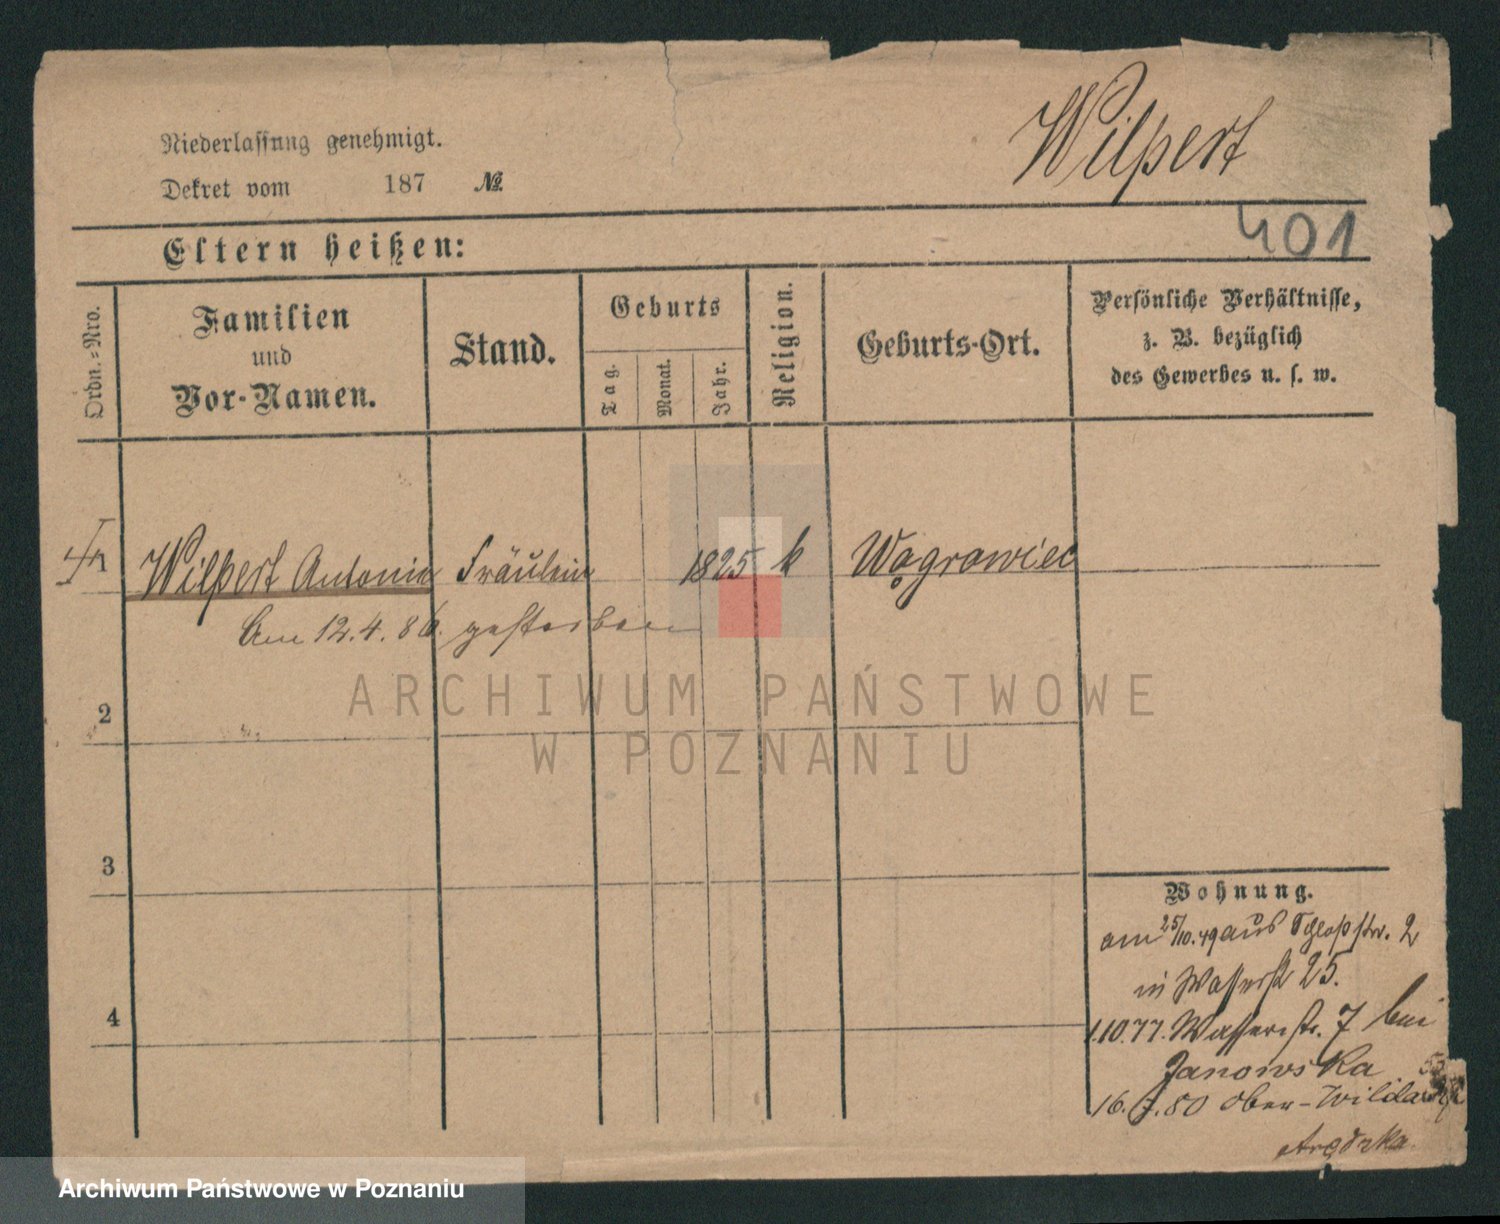 Wilpert
Niederlassung genehmigt.
Dekret vom 187 №.
401
Eltern heißen:
Ordn.-Nro.
Familien
und
Vor-Namen.
Stand.
Geburts
Tag.
Monat.
Jahr.
Religion.
Geburts-Ort.
Persönliche Verhältnisse,
z. B. bezüglich
des Gewerbes u. s. w.
Wilpert Antonie Fräulein 1825 k Wągrowiec
Am 12.4.86. gestorben
ARCHIWUM PAŃSTWOWE
W POZNANIU
2
3
4
Wohnung.
am 25/10.49 aus Schloßstr. 2
in Wasserstr 25.
1.10.77. Wasserstr. 7 bei
Janowska
16. .80 Ober-Wilda
Archiwum Państwowe w Poznaniu